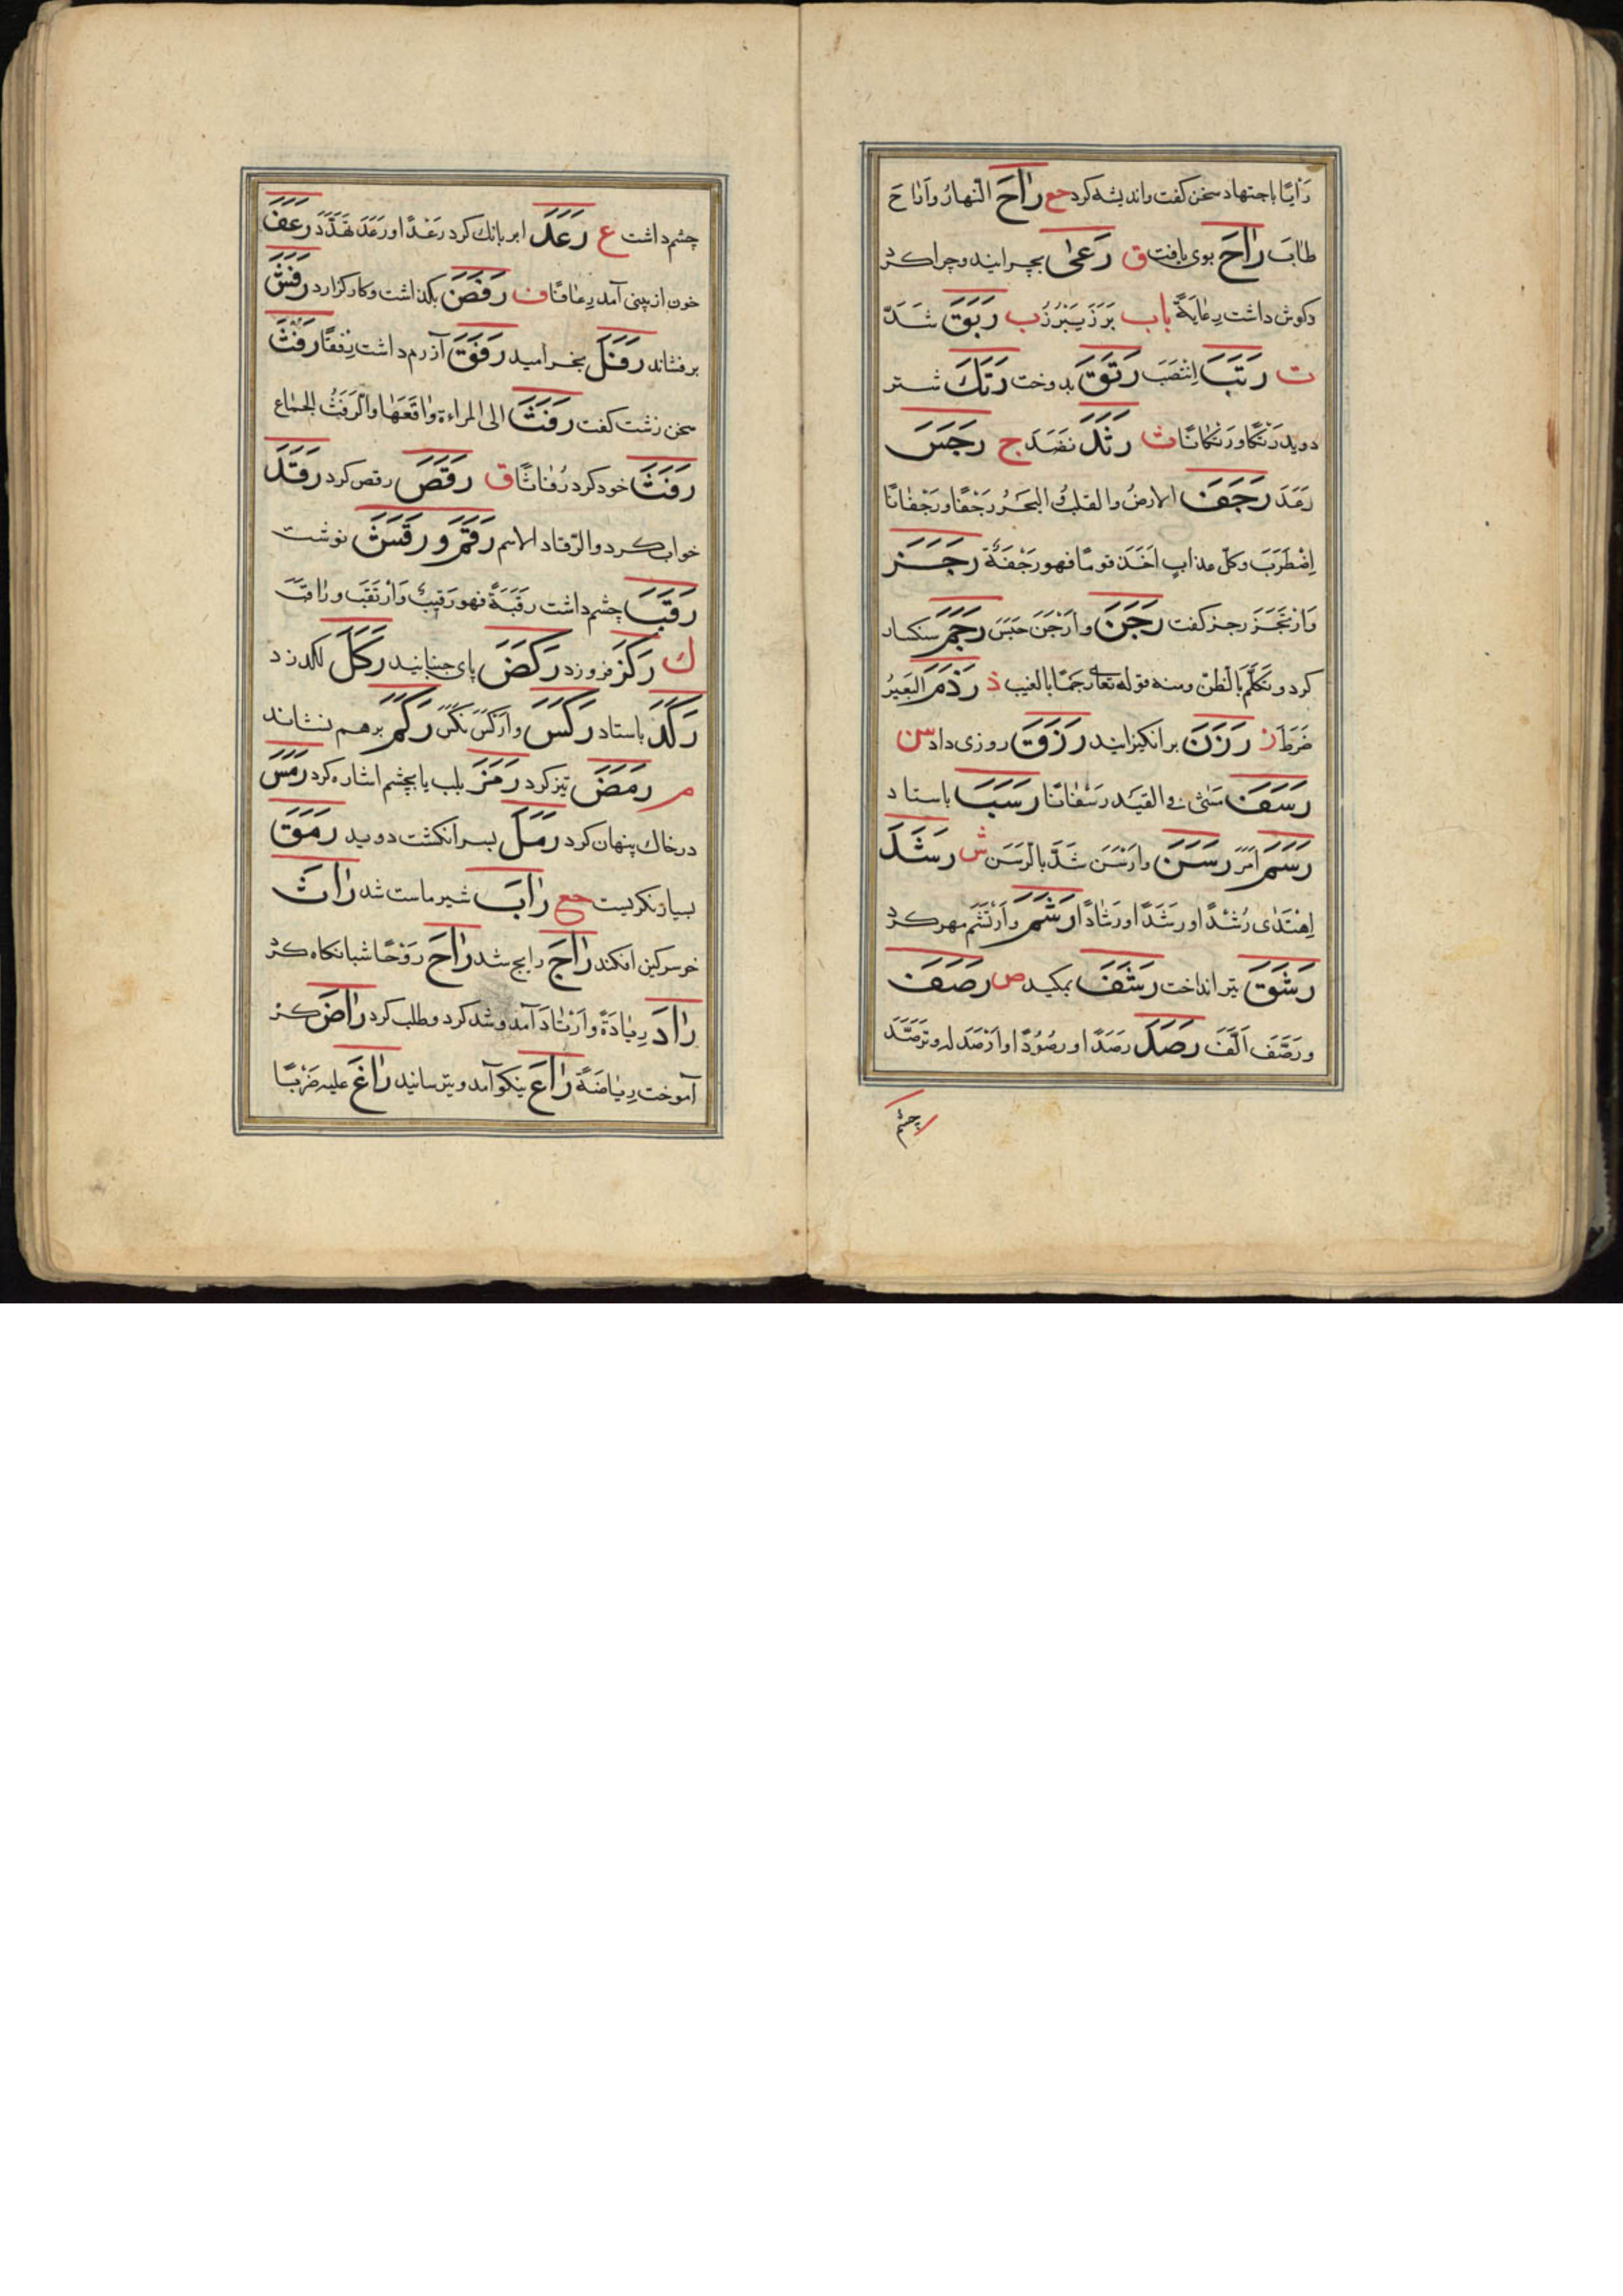 رَأْيًا باجتهاد سخن گفت واندیشه کرد حع رَاحَ النَّهارُ وَأَرَاحَ
طَابَ رَاحَ بوی یافت ق رَعَىٰ بچرانید و چرا کرد
وکوش داشت رِعَايَةً باب بَرَزَ يَبْرُزُ ب رَبَقَ شَدَّ
ت رَتَبَ اِنْتَصَبَ رَتَقَ بدوخت رَتَكَ شتر
دوید رَتْكًا ورَتَكَانًا ث رَثَدَ نَضَدَ ج رَجَسَ
رَعَدَ رَجَفَ الارضُ والقلبُ البَحْرُ رَجْفًا ورَجَفَانًا
اِضْطَرَبَ وكلّ عذابٍ اَخَذَ قومًا فهو رَجْفَةٌ رَجَزَ
وَارْتَجَزَ رجز کفت رَجَنَ وارْجَنَ حَبَسَ رَجَمَ سنکسار
کرد وتَكَلَّمَ بالظنّ ومنه قوله تعالى رجمًا بالغيب ذ رَذَمَ البَعِيرُ
ضَرَطَ ز رَزَنَ برانکیزانید رَزَقَ روزی داد س
رَسَفَ مَشٰى في القيد رَسَفَانًا رَسَبَ باستاد
رَسَمَ اَمَرَ رَسَنَ وارْسَنَ شَدَّ بالرَسَنِ ش رَشَدَ
اِهْتَدٰى رُشْدًا اورَشَدًا اورَشَادًا رَشَمَ وارْتَشَمَ مهر کرد
رَشَقَ تیر انداخت رَشَفَ بمکید ص رَصَفَ
ورَصَّفَ اَلَّفَ رَصَدَ رَصَدًا او رصُوْدًا او اَرْصَدَ له وتَرَصَّدَ
چشم
چشم داشت ع رَعَدَ ابر بانك کرد رَعْدًا او رَعَدَ تَهَدَّدَ رَعَفَ
خون از بینی آمد رِعَافًا ف رَفَضَ بکذاشت وکار کزارد رَفَشَ
برفشاند رَفَلَ بخرامید رَفَقَ آزرم داشت رِفْقًا رَفَثَ
سخن زشت کفت رَفَثَ الى المراءة واقَعَهَا والرَفَثُ الجماع
رَفَتَ خود کرد رُفَاتًا ق رَقَصَ رقص کرد رَقَدَ
خواب کرد والرّقاد الاسم رَقَمَ و رَقَشَ نوشت
رَقَبَ چشم داشت رِقْبَةً فهو رَقِيبٌ وَارْتَقَبَ ورَاقَبَ
ك رَكَزَ فرو زد رَكَضَ پای جنبانید رَكَلَ لکد زد
رَكَدَ باستاد رَكَسَ وارْكَسَ نَكَسَ رَكَمَ برهم نشاند
م رَمَضَ تیز کرد رَمَزَ بلب یا بچشم اشاره کرد رَمَسَ
در خاك پنهان کرد رَمَلَ بسر انکشت دوید رَمَقَ
بسیار نکریست حع رَابَ شیر ماست شد رَاثَ
خر سرکین افکند رَاجَ رایج شد رَاحَ رَوْحًا شبانکاه کرد
رَادَ رِيَادَةً وارْتَادَ آمد و شد کرد وطلب کرد رَاضَ کره
آموخت رِيَاضَةً رَاعَ نیکو آمد وبترسانید رَاغَ عليه ضَرْبًا